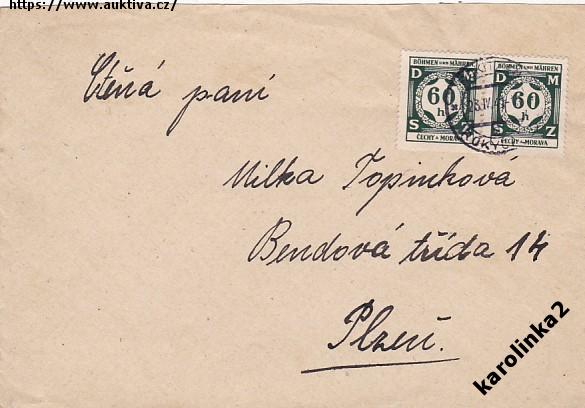 https://www.auktiva.cz/
BÖHMEN UND MÄHREN BÖHMEN UND MÄHREN
D M D M
60 60
h h
S S Z
ČECHY A MORAVA ČECHY A MORAVA
Ctěná paní
Milka Topinková
Bendová třída 14
Plzeň.
karolinka2